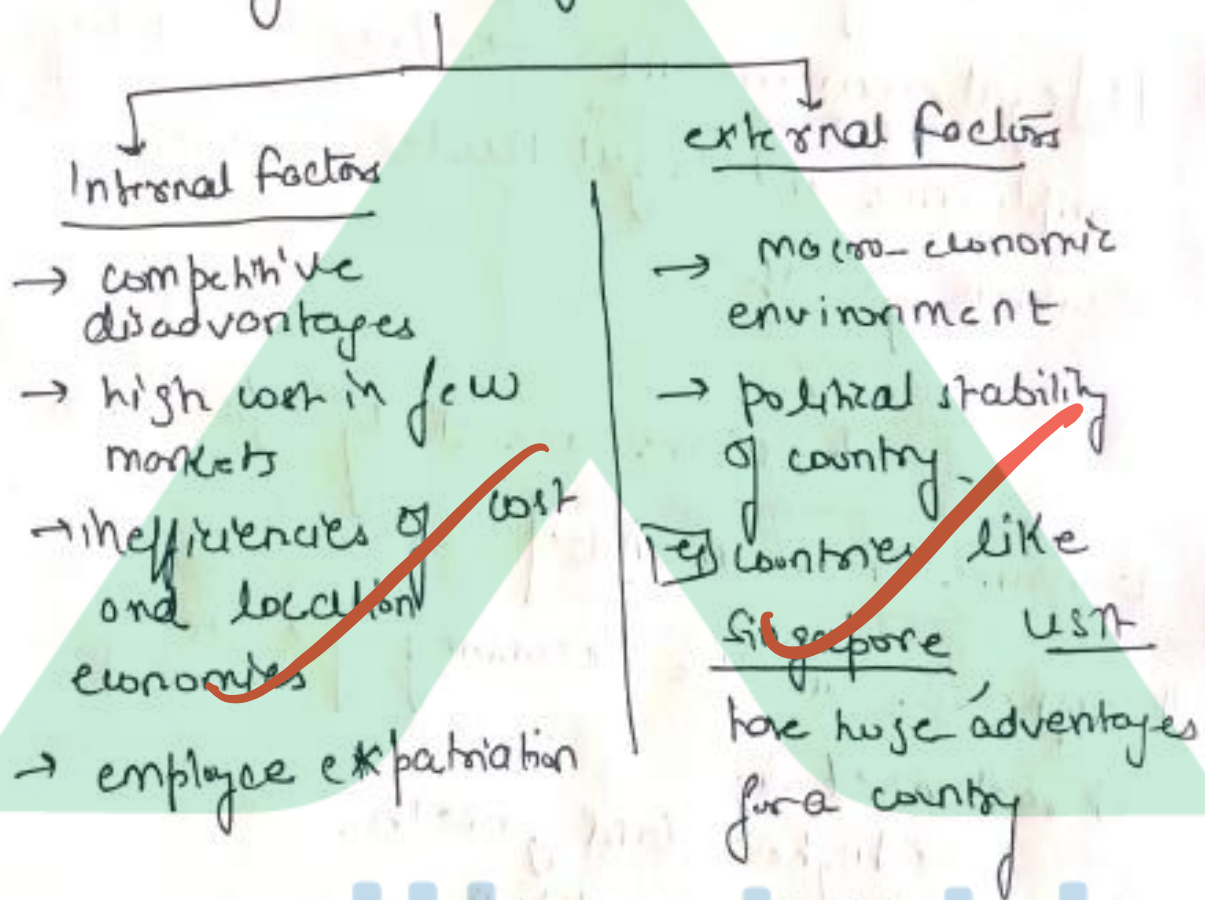 Internal factors
→ competitive
disadvantages
→ high cost in few
markets
→ inefficiencies of cost
and location
economies
→ employee expatriation
external factors
→ macro-economic
environment
→ political stability
of country.
eg countries like
Singapore, USA
have huge advantages
for a country